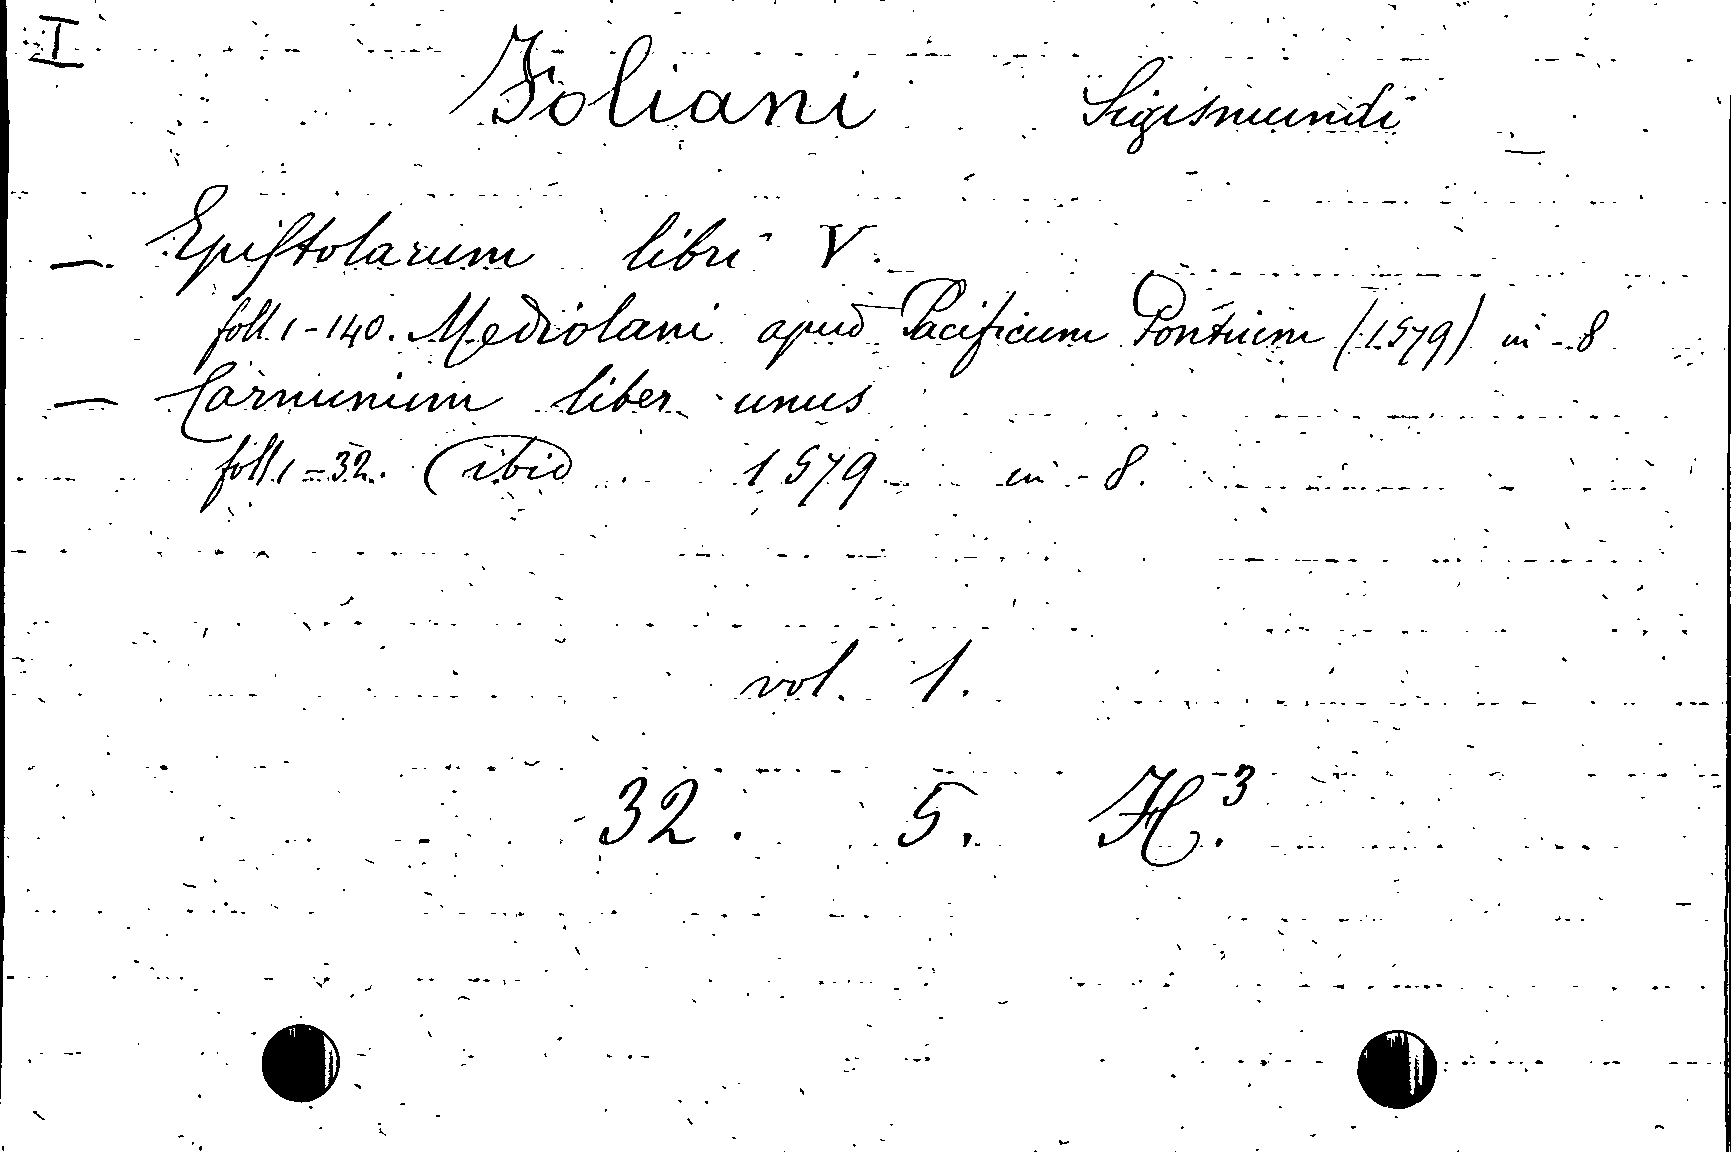 I
Foliani Sigismundi
— Epistolarum libri V.
foll. 1-140. Mediolani apud Pacificum Pontium (1579) in - 8
— Carminum liber unus
foll. 1-32. ibid 1579 in - 8.
vol. 1.
32. 5. H.³